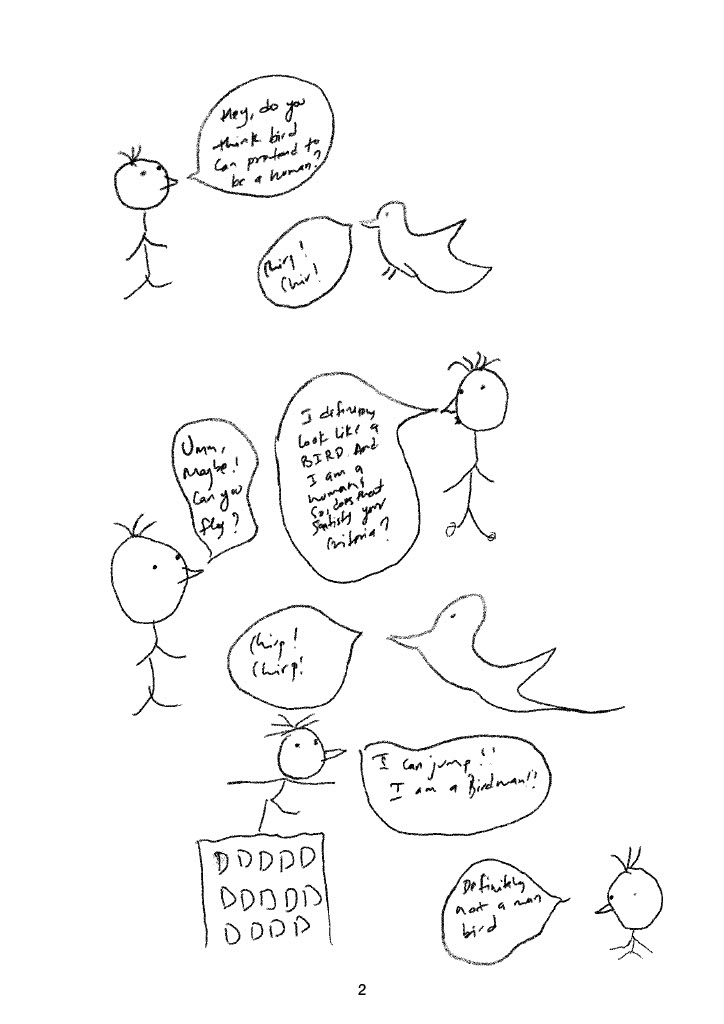 Hey, do you
think bird
can pretend to
be a human?
Chirp!
Chir!
I definitely
look like a
BIRD. And
I am a
human!
So, does that
satisfy your
criteria?
Umm,
maybe!
Can you
fly?
Chirp!
Chirp!
I can jump!!
I am a Birdman!!
DDDDD
DDDDD
DDDD
Definitely
not a man
bird
2